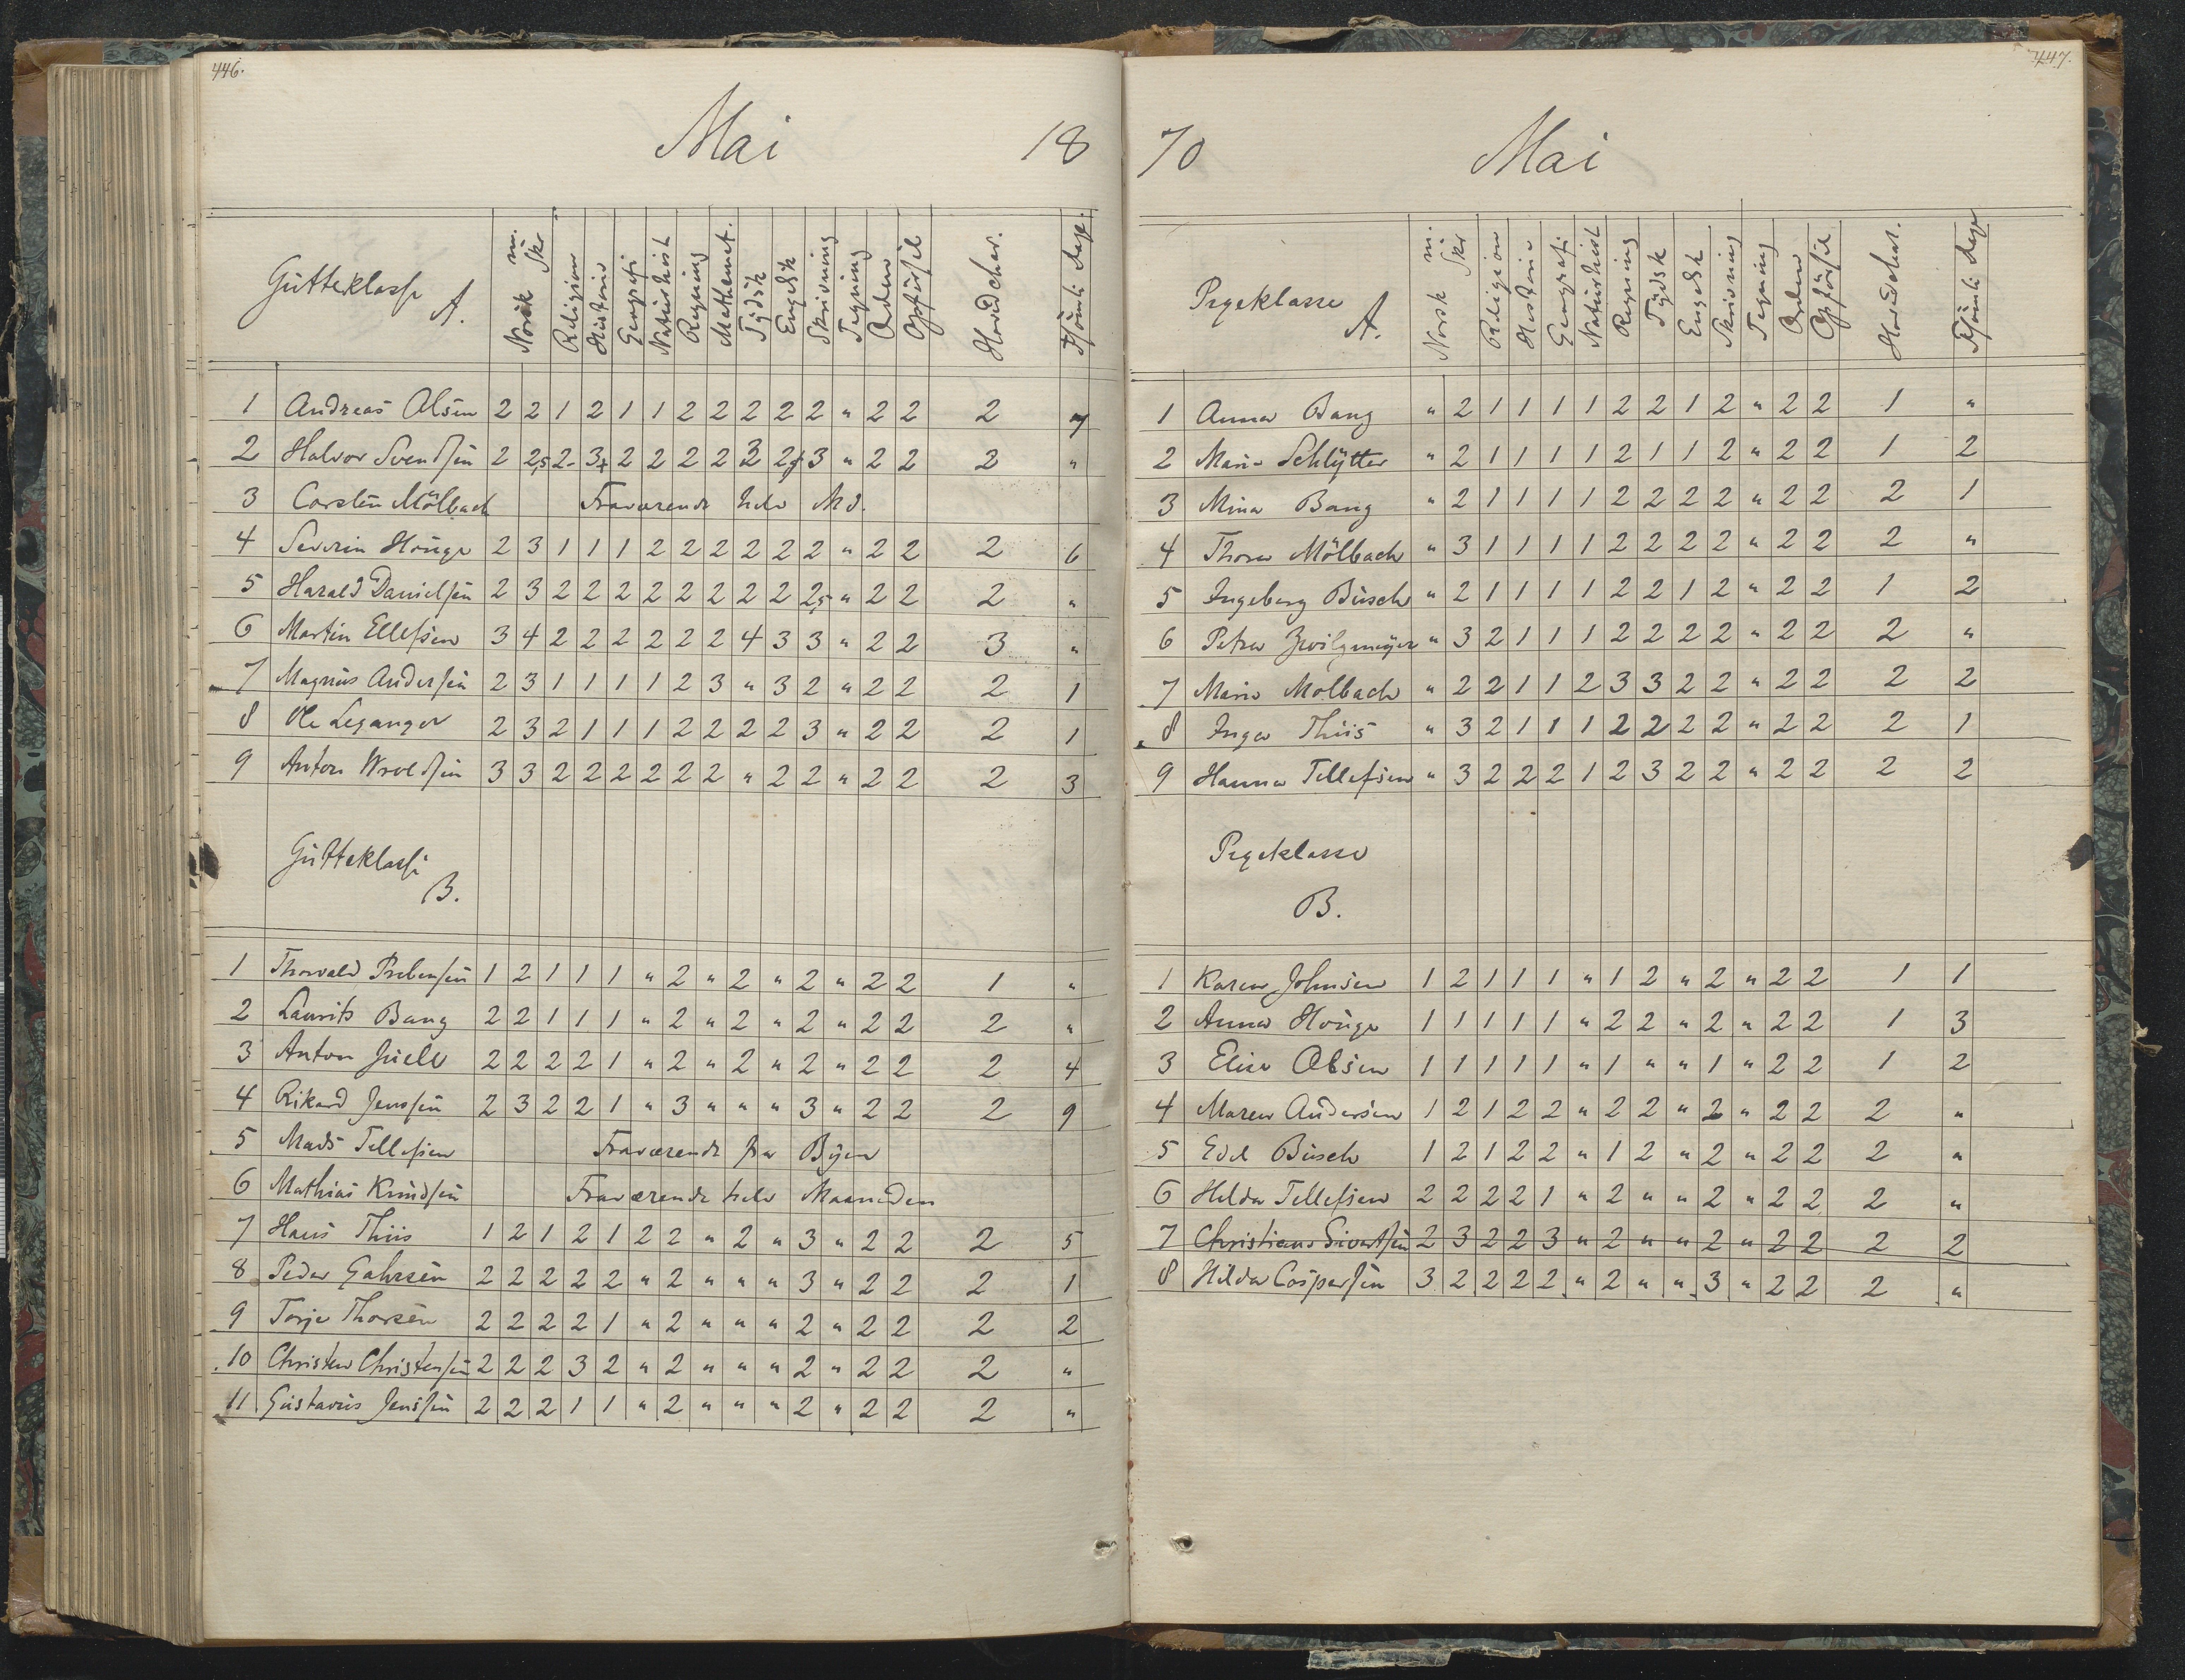 446.
Mai 18
Gutteklasse A. Norsk m. Skr Religion Historie Geografi Naturhist Regning Mathemat. Tydsk Engelsk Skrivning Tegning Orden Opførsel Hovedchar. Dage.
1 Andreas Olsen 2 2 1 2 1 1 2 2 2 2 2 " 2 2 2 7
2 Halvor Svendsen 2 2,5 2- 3+ 2 2 2 2 3 2 3 " 2 2 2 "
3 Carsten Mölbach Fraværende hele Md.
4 Severin Houge 2 3 1 1 1 2 2 2 2 2 2 " 2 2 2 6
5 Harald Danielsen 2 3 2 2 2 2 2 2 2 2 2,5 " 2 2 2 "
6 Martin Ellefsen 3 4 2 2 2 2 2 2 4 3 3 " 2 2 3 "
7 Magnus Andersen 2 3 1 1 1 1 2 3 " 3 2 " 2 2 2 1
8 Ole Leganger 2 3 2 1 1 1 2 2 2 2 3 " 2 2 2 1
9 Anton Wroldsen 3 3 2 2 2 2 2 2 " 2 2 " 2 2 2 3
Gutteklasse
B.
1 Thorvald Prebensen 1 2 1 1 1 " 2 " 2 " 2 " 2 2 1 "
2 Laurits Bang 2 2 1 1 1 " 2 " 2 " 2 " 2 2 2 "
3 Anton Juell 2 2 2 2 1 " 2 " 2 " 2 " 2 2 2 4
4 Rikard Jenssen 2 3 2 2 1 " 3 " " " 3 " 2 2 2 9
5 Mads Tellefsen Fraværende fra Byen
6 Mathias Knudsen Fraværende hele Maaneden
7 Hans Thiis 1 2 1 2 1 2 2 " 2 " 3 " 2 2 2 5
8 Peder Gahrsen 2 2 2 2 2 " 2 " " " 3 " 2 2 2 1
9 Torje Thorsen 2 2 2 2 1 " 2 " " " 2 " 2 2 2 2
10 Christen Christensen 2 2 2 3 2 " 2 " " " 2 " 2 2 2 "
11 Gustavus Jenssen 2 2 2 1 1 " 2 " " " 2 " 2 2 2 "
447.
70 Mai
Pigeklasse A. Norsk m. Skr Religion Historie Geografi Naturhist Regning Tydsk Engelsk Skrivning Tegning Orden Opførsel Dage
1 Anna Bang " 2 1 1 1 1 2 2 1 2 " 2 2 1 "
2 Marie Schlytter " 2 1 1 1 1 2 1 1 2 " 2 2 1 2
3 Mina Bang " 2 1 1 1 1 2 2 2 2 " 2 2 2 1
4 Thora Mölbach " 3 1 1 1 1 2 2 2 2 " 2 2 2 "
5 Ingeborg Busch " 2 1 1 1 1 2 2 1 2 " 2 2 1 2
6 Petra Zwilgmeyer " 3 2 1 1 1 2 2 2 2 " 2 2 2 "
7 Marie Mölbach " 2 2 1 1 2 3 3 2 2 " 2 2 2 2
8 Inga Thiis " 3 2 1 1 1 2 2 2 2 " 2 2 2 1
9 Hanna Tellefsen " 3 2 2 2 1 2 3 2 2 " 2 2 2 2
Pigeklasse
B.
1 Karen Johnsen 1 2 1 1 1 " 1 2 " 2 " 2 2 1 1
2 Anna Houge 1 1 1 1 1 " 2 2 " 2 " 2 2 1 3
3 Elise Olsen 1 1 1 1 1 " 1 " " 1 " 2 2 1 2
4 Maren Andersen 1 2 1 2 2 " 2 2 " 2 " 2 2 2 "
5 Edel Busch 1 2 1 2 2 " 1 2 " 2 " 2 2 2 "
6 Hilda Tellefsen 2 2 2 2 1 " 2 " " 2 " 2 2 2 "
7 Christiane Sivertsen 2 3 2 2 3 " 2 " " 2 " 2 2 2 2
8 Hilda Caspersen 3 2 2 2 2 " 2 " " 3 " 2 2 2 "